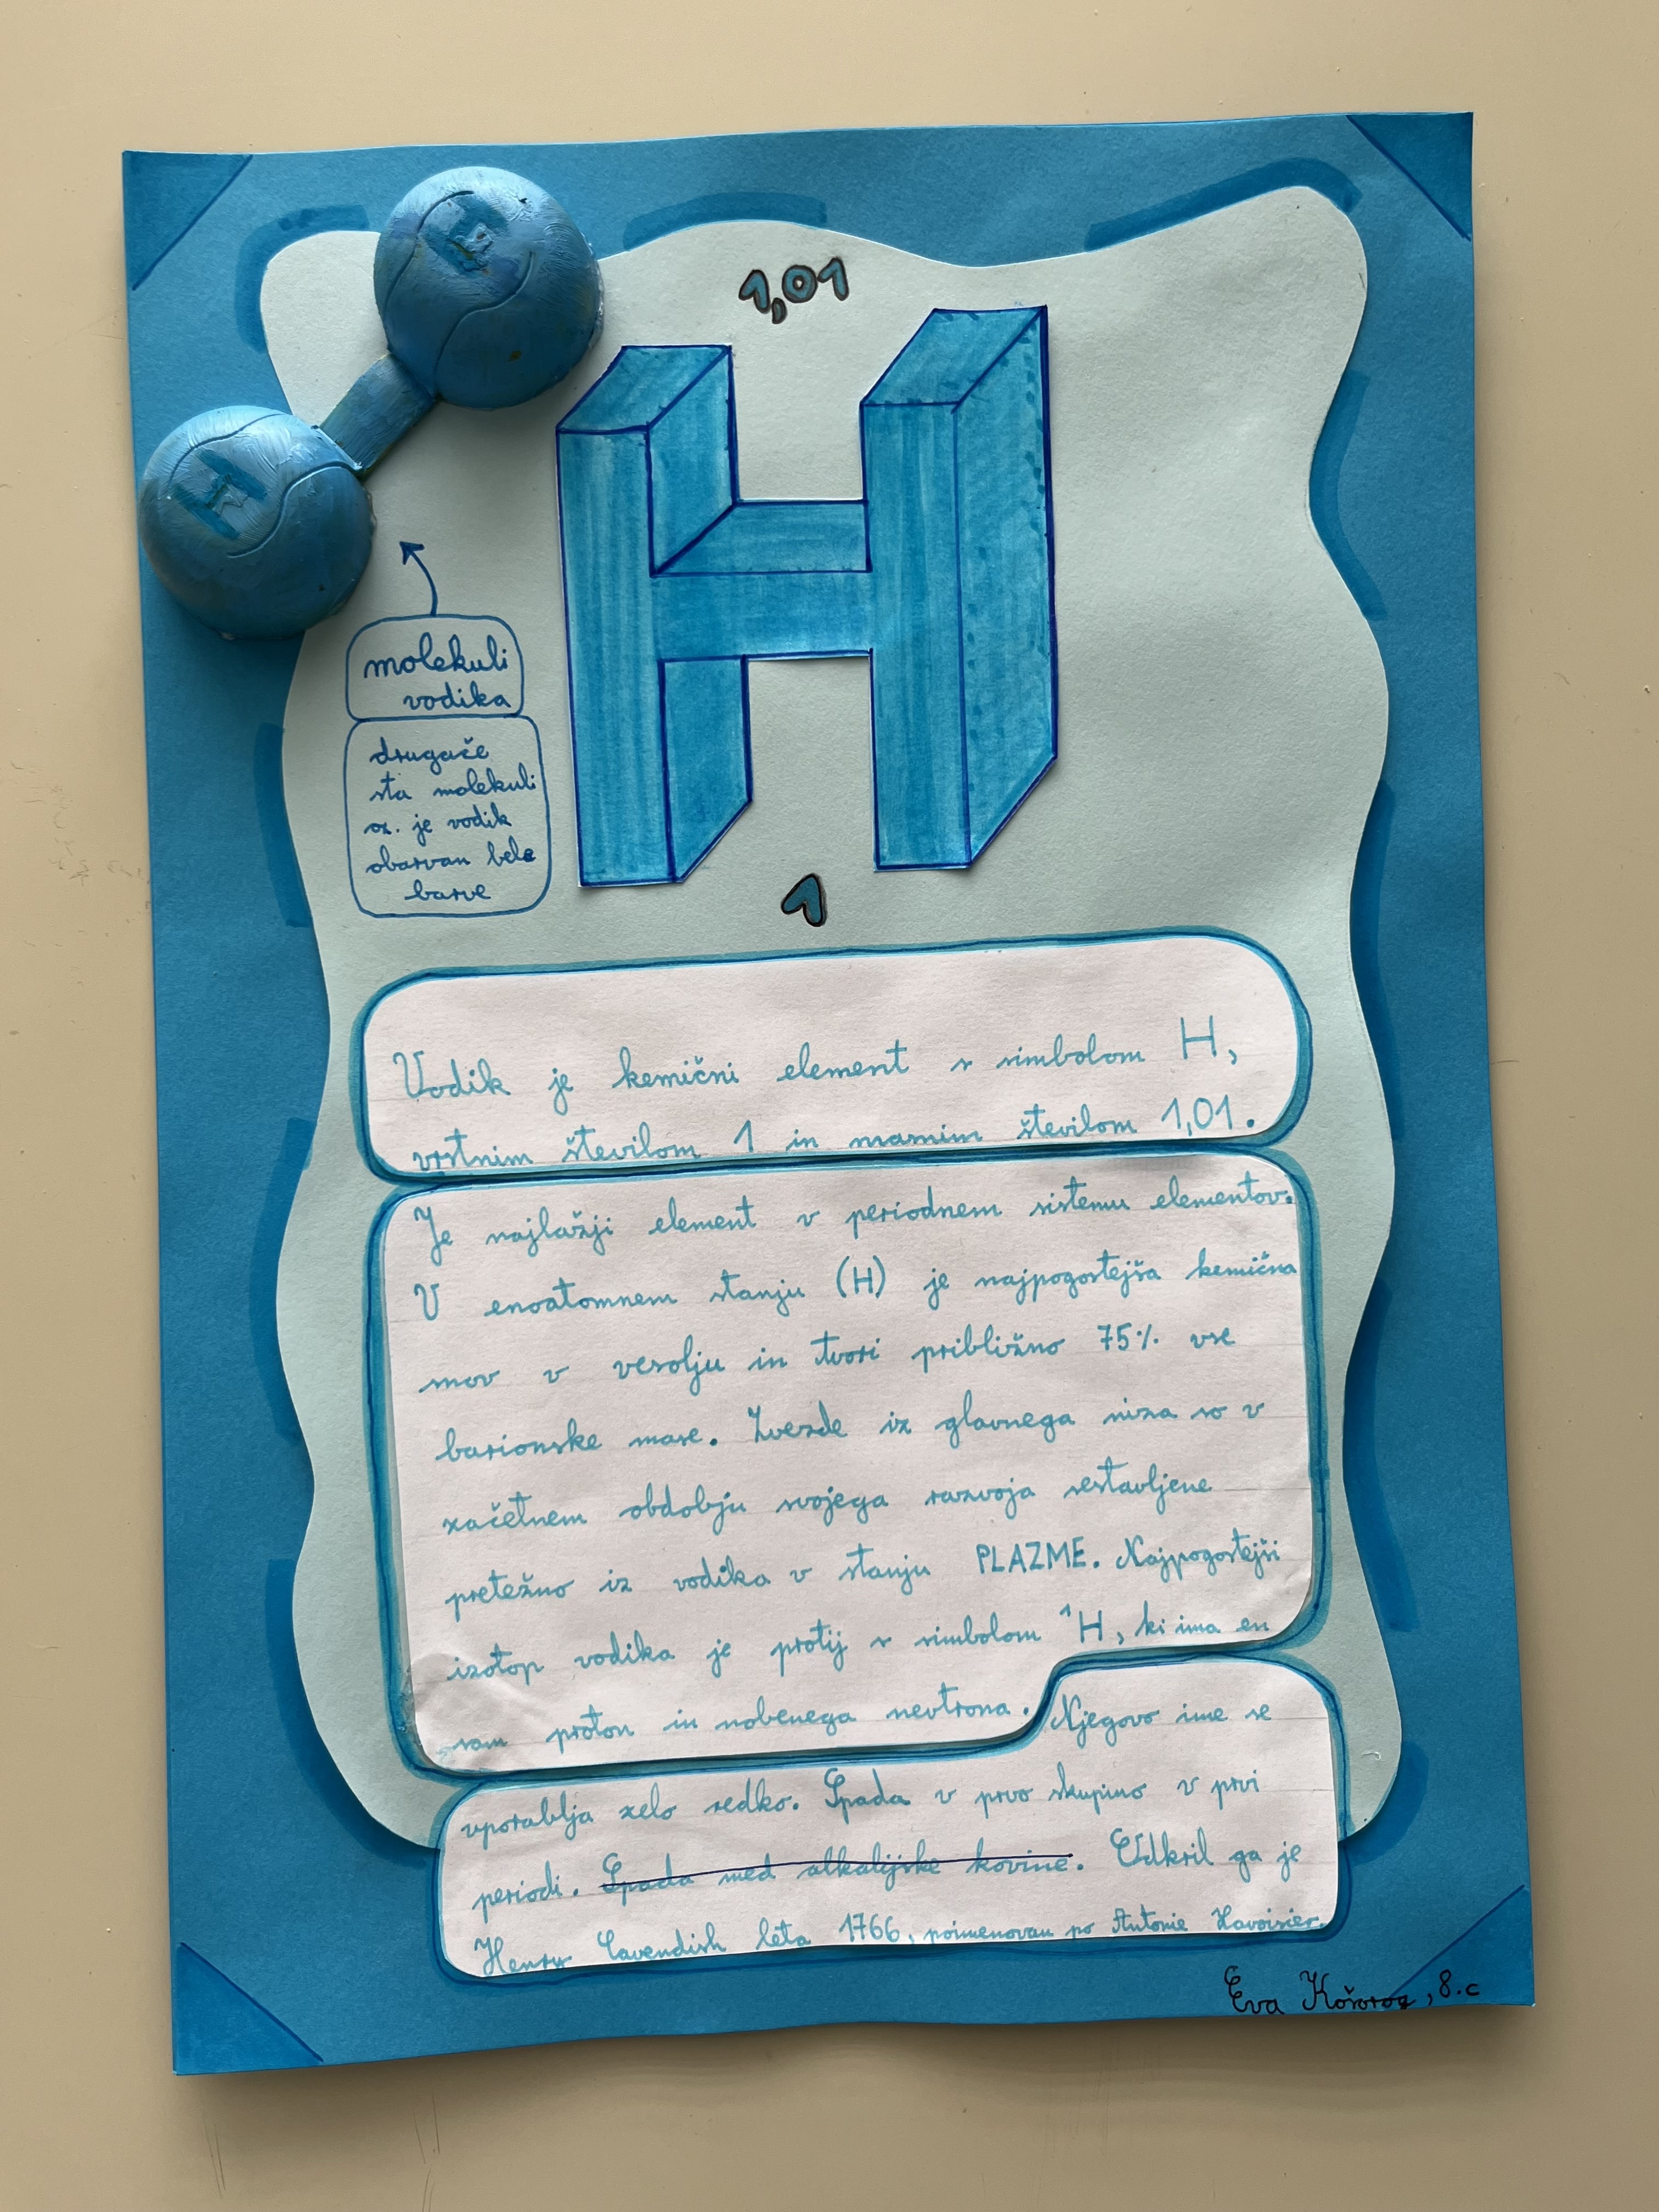 H
H
1,01
H
1
molekuli
vodika
drugače
sta molekuli
oz. je vodik
obarvan bele
barve
Vodik je kemični element s simbolom H,
vrstnim številom 1 in masnim številom 1,01.
Je najlažji element v periodnem sistemu elementov.
V enoatomnem stanju (H) je najpogostejša kemična
snov v vesolju in tvori približno 75% vse
barionske mase. Zvezde iz glavnega niza so v
začetnem obdobju svojega razvoja sestavljene
pretežno iz vodika v stanju PLAZME. Najpogostejši
izotop vodika je protij s simbolom ¹H, ki ima en
sam proton in nobenega nevtrona. Njegovo ime se
uporablja zelo redko. Spada v prvo skupino v prvi
periodi. Spada med alkalijske kovine. Odkril ga je
Henry Cavendish leta 1766, poimenovan po Antonie Lavoisier.
Eva, 8.c